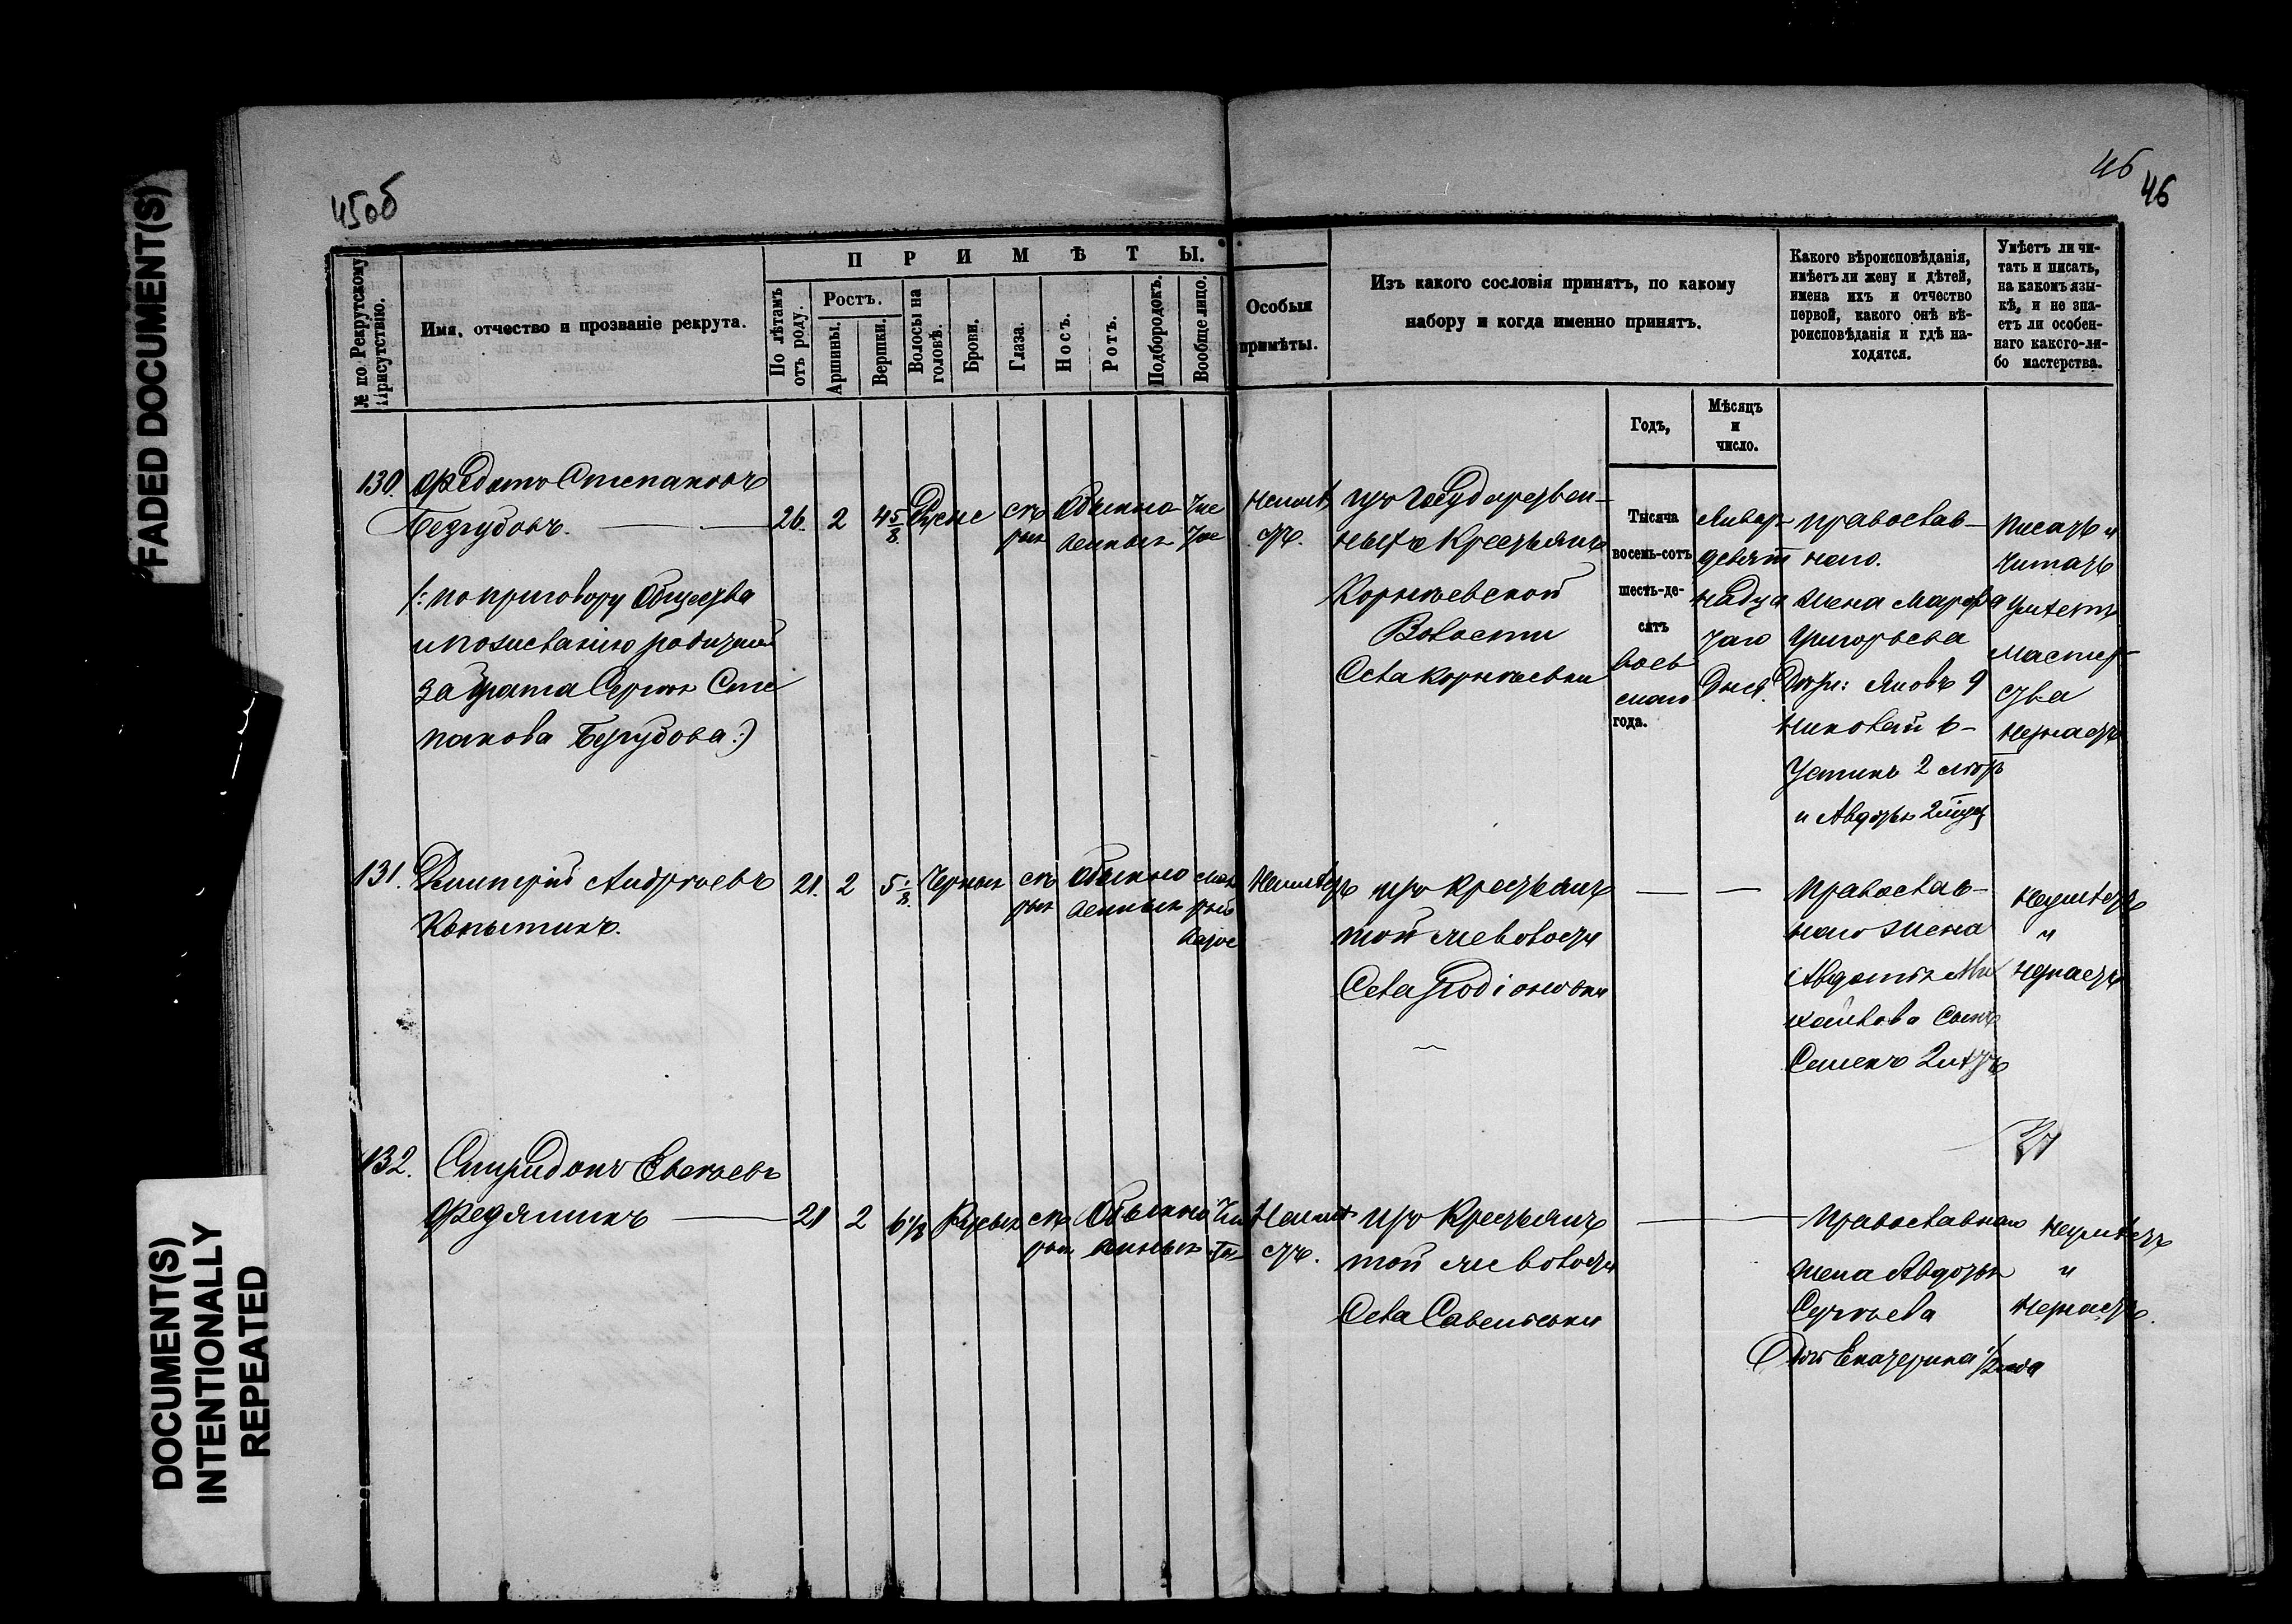 FADED DOCUMENT(S)
DOCUMENT(S)
INTENTIONALLY
REPEATED
45об
46
46
№ по Рекрутскому Присутствію.
Имя, отчество и прозваніе рекрута.
ПРИМѢТЫ.
По лѣтамъ отъ роду.
Ростъ.
Аршины.
Вершки.
Волосы на головѣ.
Брови.
Глаза.
Носъ.
Ротъ.
Подбородокъ.
Вообще лицо.
Особыя
примѣты.
Изъ какого сословія принятъ, по какому
набору и когда именно принятъ.
Годъ,
Мѣсяцъ
и
число.
Какого вѣроисповѣданія,
имѣетъ ли жену и дѣтей,
имена ихъ и отчество
первой, какого онѣ вѣ-
роисповѣданія и гдѣ на-
ходятся.
Умѣетъ ли чи-
тать и писать,
на какомъ язы-
кѣ, и не зна-
етъ ли особен-
наго какого-ли-
бо мастерства.
130. Федотъ Степановъ
Безгубовъ.
26. 2 4 5/8 Русые сѣ
рые
Обыкно
венные
Чис
тое
Неимѣ
етъ.
/: по приговору Общества
и по желанію родителей
за брата Сергея Сте
панова Безгубова :)
изъ Государствен-
ныхъ Крестьянъ
Корнеевской
Волости
Села Корнеевки
Тысяча
восемь-сотъ
шесть-де-
сятъ
вось
маго
года.
Январ
девят
надца
таго
Дня.
православ-
наго.
Жена Марфа
Григорьева
Дѣти: Яковъ 9
Николай 6-
Устинъ 2 лѣтъ
и Авдотья
Писать и
читать
Умѣетъ
мастер-
ства
незнаетъ
131. Дмитрій Андреевъ
Копытинъ.
21. 2 5 1/8. Черные сѣ
рые
обыкно
венные
Неимѣетъ
изъ крестьянъ
той же волости
Села Родіоновки
Православ-
наго жена
Авдотья Ми
хайлова Сынъ
Семенъ 2 лѣтъ
неумѣетъ
"
незнаетъ
132. Спиридонъ Евсеевъ
Федяшинъ
21 2 6 1/8 Русые сѣ
рые
Обыкно
венные
Чис
тое
Неимѣ
етъ.
изъ Крестьянъ
той же волости
Села Савельевки
Православнаго
жена Авдотья
Сергеева
Дочь Екатерина 1/2 года
неумѣетъ
"
Незнаетъ.